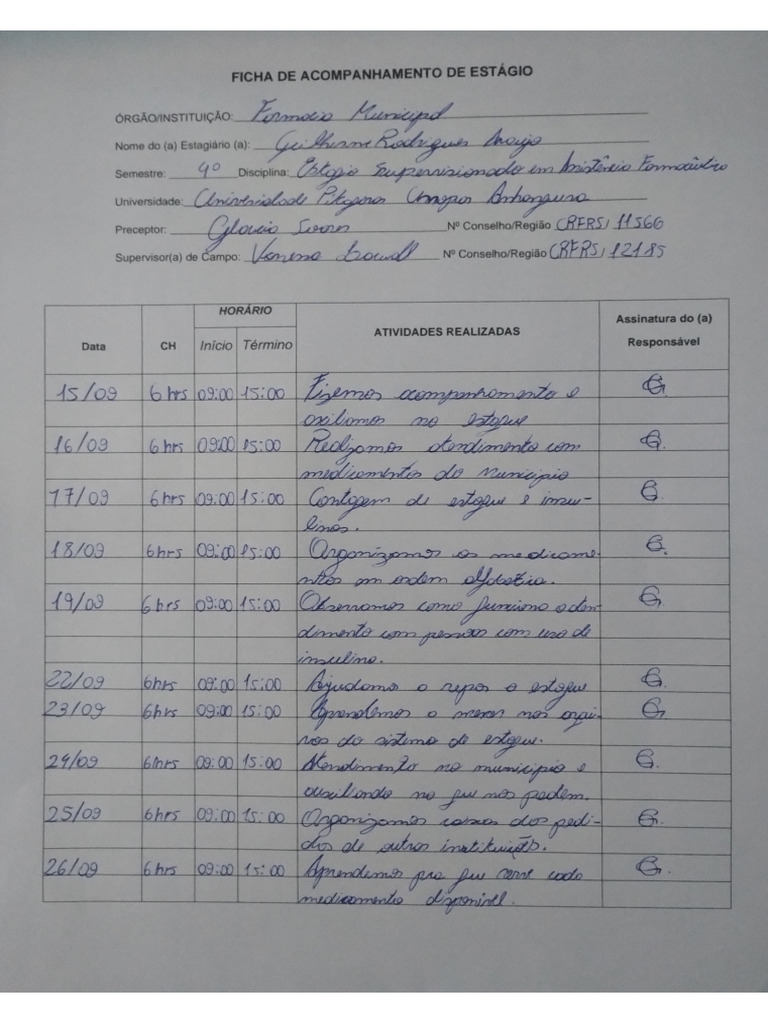 FICHA DE ACOMPANHAMENTO DE ESTÁGIO
ÓRGÃO/INSTITUIÇÃO: Farmacia Municipal
Nome do (a) Estagiário (a): Guilherme Rodrigues Araujo
Semestre: 4º Disciplina: Estagio Supervisionado em Assistência Farmacêutica
Universidade: Universidade Pitagoras Unopar Anhanguera
Preceptor: Nº Conselho/Região CRFRS/11566
Supervisor(a) de Campo: Vanessa Nº Conselho/Região CRFRS/12185
Data CH HORÁRIO Início Término ATIVIDADES REALIZADAS Assinatura do (a) Responsável
15/09 6hrs 09:00 15:00 Fizemos acompanhamento e
oxiliamos no estoque
16/09 6hrs 09:00 15:00 Realizamos atendimento com
medicamentos do Municipio
17/09 6hrs 09:00 15:00 Contagem de estoque e insu-
linas.
18/09 6hrs 09:00 15:00 Organizamos os medicame-
ntos em ordem alfabetica.
19/09 6hrs 09:00 15:00 Observamos como funciona o aten-
dimento com pessoas com uso de
insulina.
22/09 6hrs 09:00 15:00 Ajudamos a repor o estoque
23/09 6hrs 09:00 15:00 Aprendemos a mexer nos arqui-
vos do sistema de estoque.
24/09 6hrs 09:00 15:00 Atendimento no municipio e
auxiliando no que nos pedem.
25/09 6hrs 09:00 15:00 Organizamos caixas dos pedi-
dos de outras instituições.
26/09 6hrs 09:00 15:00 Aprendemos pra que serve cada
medicamento disponivel.